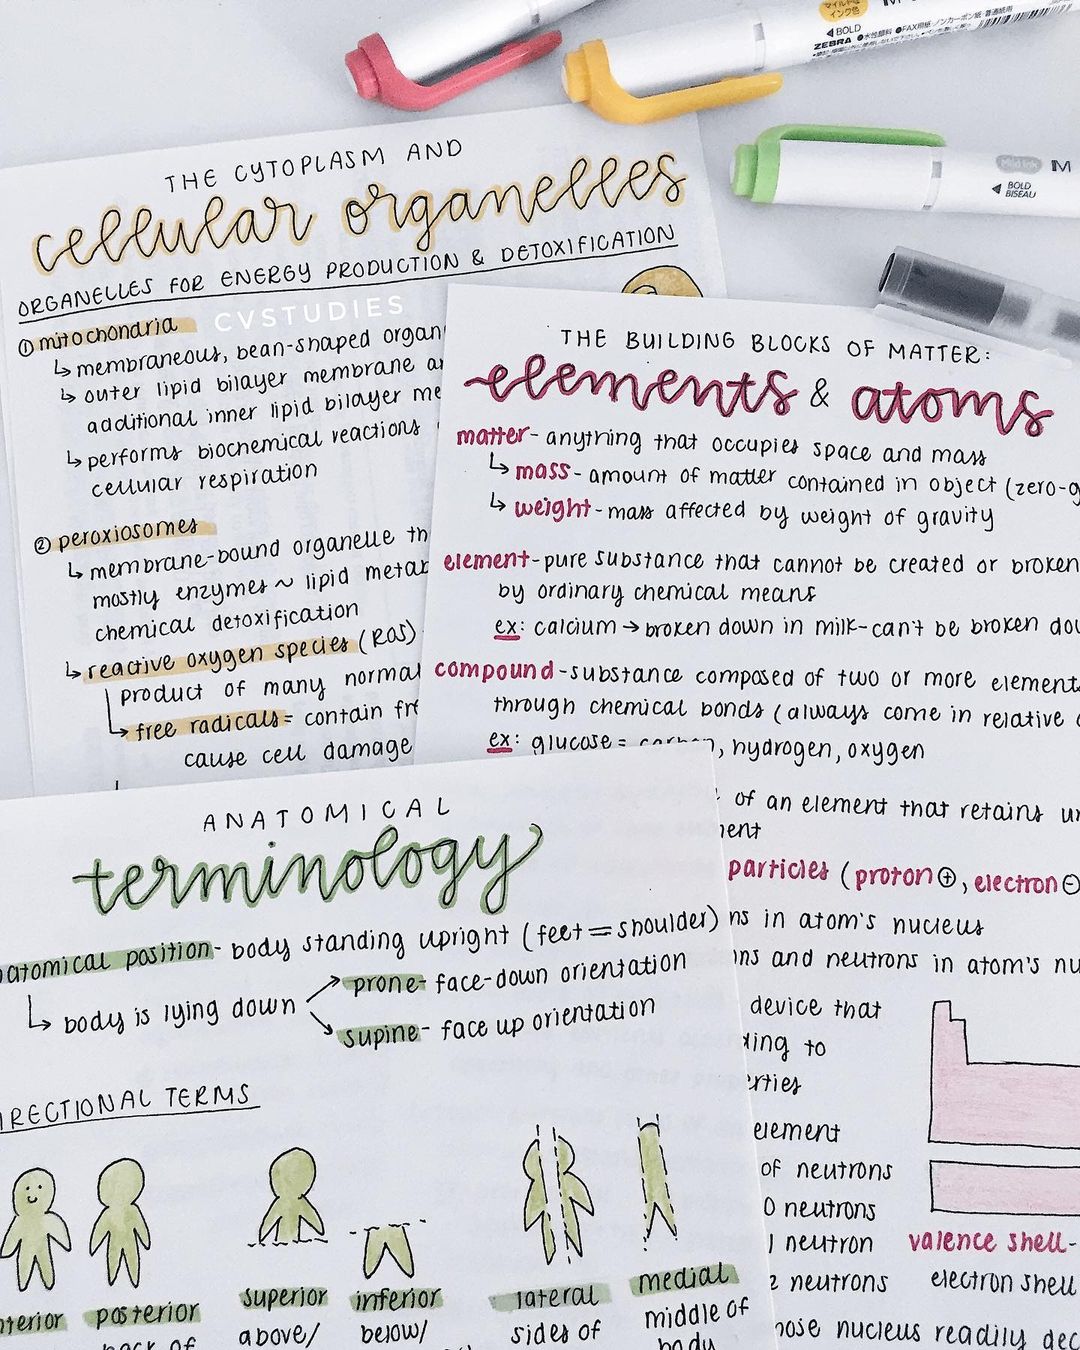 BOLD
ZEBRA
BOLD
BISEAU
M
THE CYTOPLASM AND
cellular organelles
ORGANELLES FOR ENERGY PRODUCTION & DETOXIFICATION
CVSTUDIES
① mitochondria
↳ membraneous, bean-shaped organ
↳ outer lipid bilayer membrane
additional inner lipid bilayer
↳ performs biochemical reactions
cellular respiration
② peroxiosomes
↳ membrane-bound organelle
mostly enzymes ~ lipid
chemical detoxification
↳ reactive oxygen species (ROS)
product of many normal
↳ free radicals = contain
cause cell damage
THE BUILDING BLOCKS OF MATTER:
elements & atoms
matter - anything that occupies space and mass
↳ mass - amount of matter contained in object (zero-g
↳ weight - mass affected by weight of gravity
element - pure substance that cannot be created or broken
by ordinary chemical means
ex: calcium → broken down in milk - can't be broken
compound - substance composed of two or more element
through chemical bonds (always come in relative
ex: glucose = carbon, hydrogen, oxygen
of an element that retains
particles (proton ⊕, electron ⊖
in atom's nucleus
and neutrons in atom's
device that
to
element
of neutrons
0 neutrons
1 neutron
2 neutrons
valence shell -
electron shell
nucleus readily
ANATOMICAL
terminology
atomical position - body standing upright (feet = shoulder)
↳ body is lying down
prone - face-down orientation
supine - face up orientation
IRECTIONAL TERMS
terior
posterior
back of
superior
above/
inferior
below/
lateral
sides of
medial
middle of
body